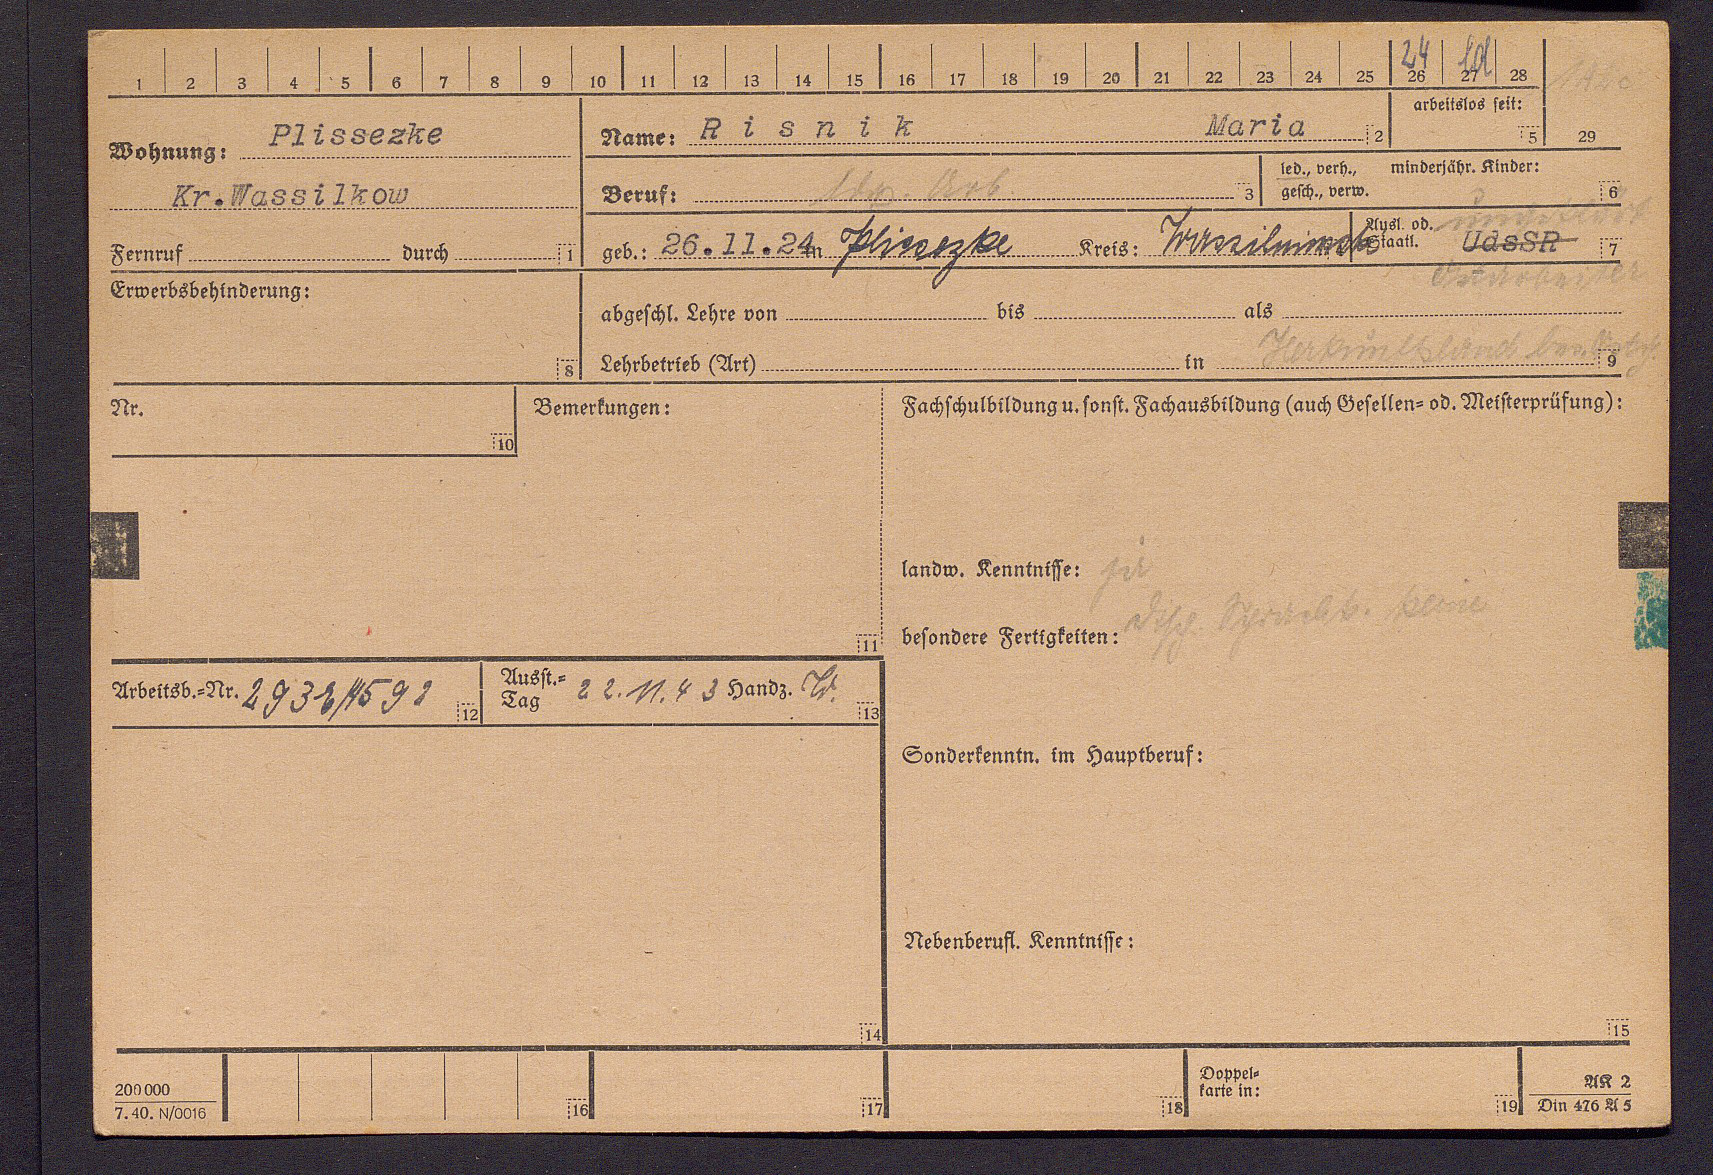 1 2 3 4 5 6 7 8 9 10 11 12 13 14 15 16 17 18 19 20 21 22 23 24 25 26 27 28
24 ld
Wohnung: Plissezke
Kr.Wassilkow
Fernruf durch 1
Name: Risnik Maria 2
arbeitslos seit: 5 29
Beruf: ldw. Arb. 3
led., verh., gesch., verw.
minderjähr. Kinder: 6
geb.: 26.11.24 in Plissezke Kreis:
Ausl. od. Staatl. UdsSR 7
ungeklärt
Ostarbeiter
Erwerbsbehinderung: 8
abgeschl. Lehre von bis als
Lehrbetrieb (Art) in 9
Herkunftsland
Nr. 10
Bemerkungen: 11
Fachschulbildung u. sonst. Fachausbildung (auch Gesellen= od. Meisterprüfung):
landw. Kenntnisse: ja
besondere Fertigkeiten: dtsch. keine
Arbeitsb.=Nr. 12
Ausst.=Tag 22.11.43 Handz. 13
Sonderkenntn. im Hauptberuf:
Nebenberufl. Kenntnisse:
14
15
200000
7.40. N/0016
16 17 18
Doppel=
karte in: 19
AK 2
Din 476 A 5